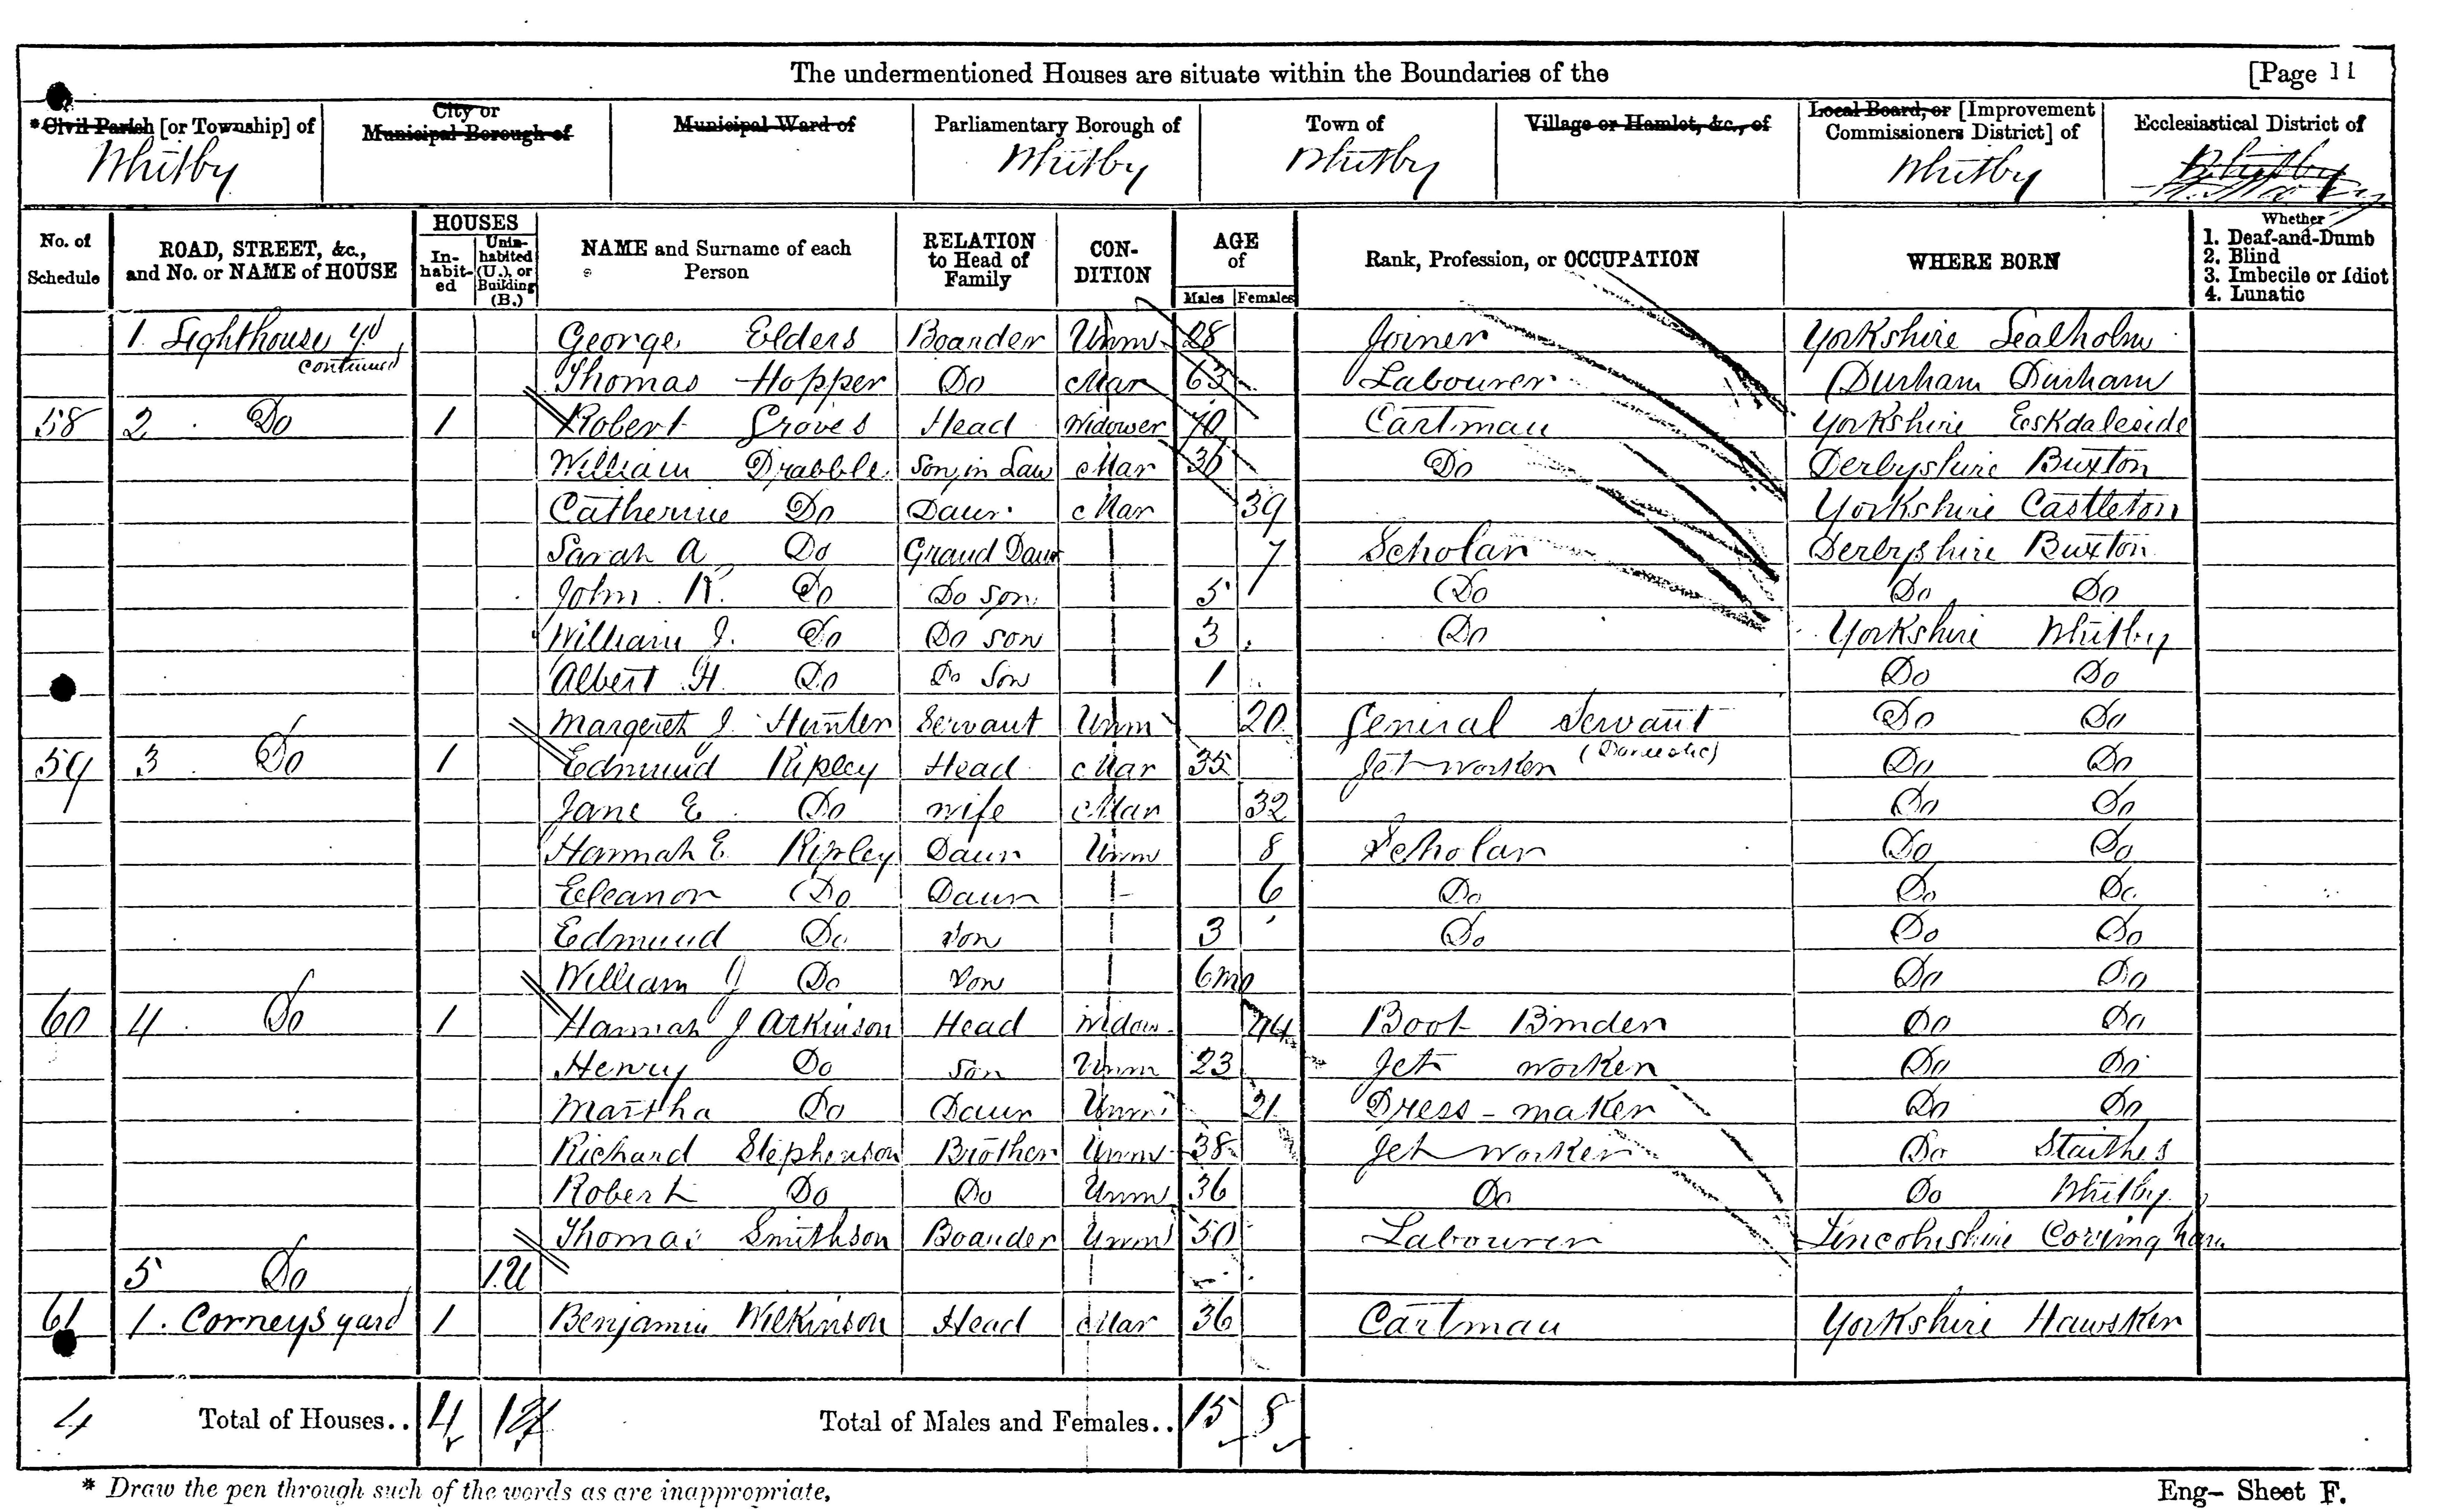 The undermentioned Houses are situate within the Boundaries of the [Page 11
*Civil Parish [or Township] of City or Municipal Borough of Municipal Ward of Parliamentary Borough of Town of Village or Hamlet, &c., of Local Board, or [Improvement Commissioners District] of Ecclesiastical District of
Whitby Whitby Whitby Whitby
No. of Schedule ROAD, STREET, &c., and No. or NAME of HOUSE HOUSES In-habit-ed Unin-habited (U.), or Building (B.) NAME and Surname of each Person RELATION to Head of Family CON-DITION AGE of Males Females Rank, Profession, or OCCUPATION WHERE BORN Whether 1. Deaf-and-Dumb 2. Blind 3. Imbecile or Idiot 4. Lunatic
1. Lighthouse yd continued George Elders Boarder Unm 28 Joiner Yorkshire Lealholm
Thomas Hopper Do Mar 63 Labourer Durham Durham
58 2 Do 1 Robert Groves Head Widower 70 Cartman Yorkshire Eskdaleside
William Drabble Son in Law Mar 36 Do Derbyshire Buxton
Catherine Do Daur Mar 39 Yorkshire Castleton
Sarah A Do Grand Daur 7 Scholar Derbyshire Buxton
John R. Do Do Son 5 Do Do Do
William J. Do Do son 3 Do Yorkshire Whitby
Albert H. Do Do Son 1 Do Do
Margeret J. Hunter Servant Unm 20 General Servant (Domestic) Do Do
59 3 Do 1 Edmund Ripley Head Mar 35 Jet worker Do Do
Jane E Do wife Mar 32 Do Do
Hannah E Ripley Daur Unm 8 Scholar Do Do
Eleanor Do Daur - 6 Do Do Do
Edmund Do Son 3 Do Do Do
William J Do Son 6mo Do Do
60 4 Do 1 Hannah J Atkinson Head Widow 44 Boot Binder Do Do
Henry Do Son Unm 23 Jet worker Do Do
Martha Do Daur Unm 21 Dress-maker Do Do
Richard Stephenson Brother Unm 38 Jet worker Do Staithes
Robert Do Do Unm 36 Do Do Whitby
Thomas Smithson Boarder Unm 50 Labourer Lincolnshire Corringham
5 Do 1.U
61 1. Corneys yard 1 Benjamin Wilkinson Head Mar 36 Cartman Yorkshire Hawsker
4 Total of Houses.. 4 1U Total of Males and Females.. 15 8
* Draw the pen through such of the words as are inappropriate.
Eng- Sheet F.